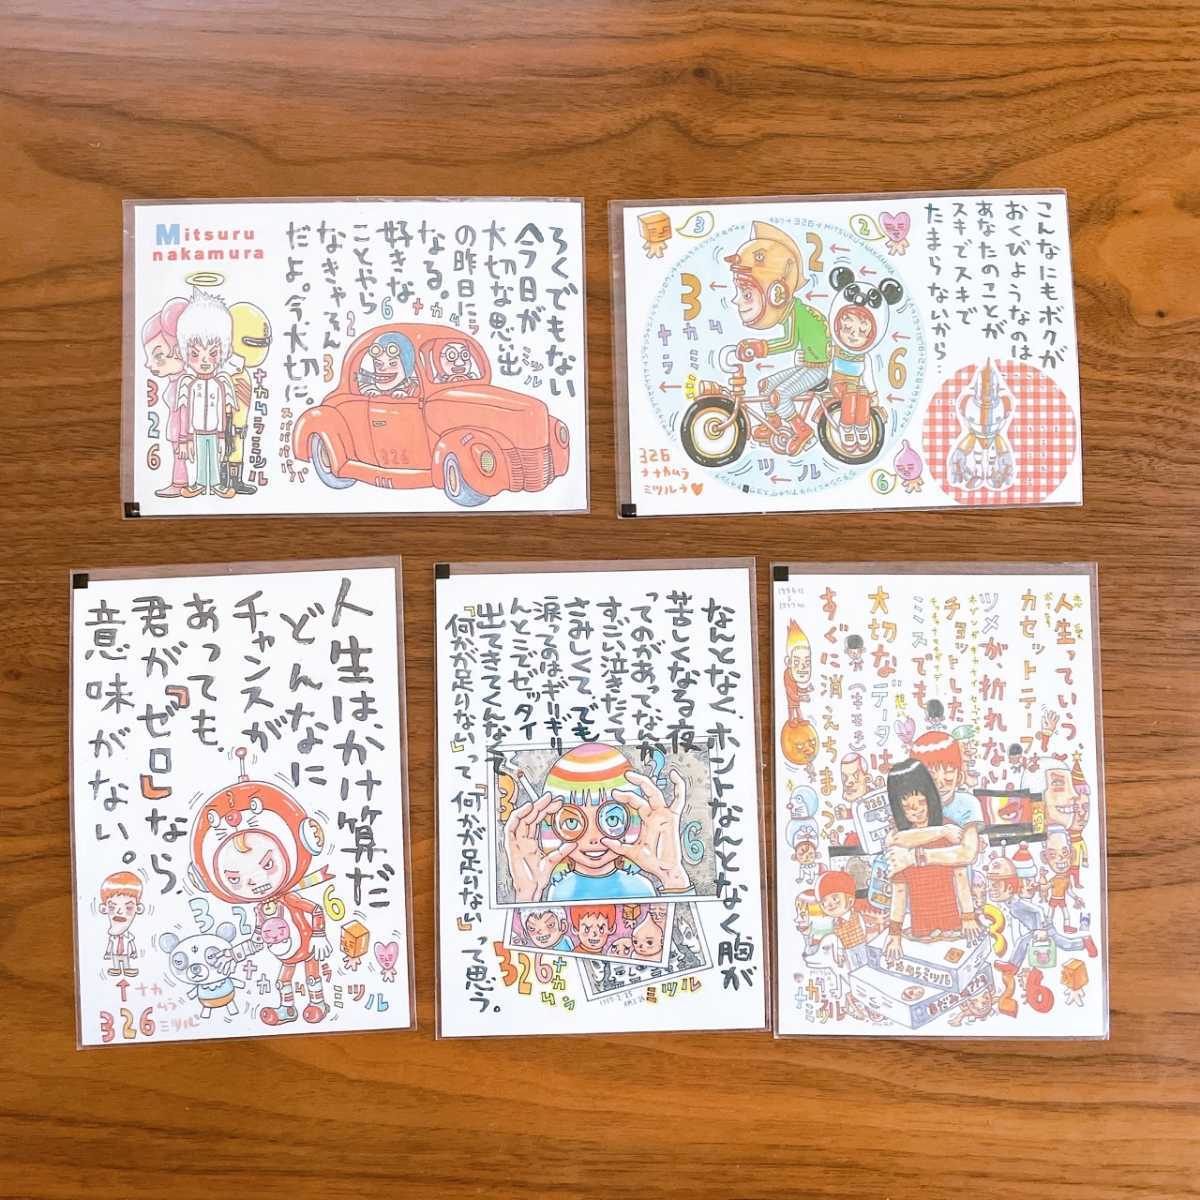 Mitsuru
nakamura
ろくでもない
今日が
大切な思い出
の昨日に
なる。
好きな
ことやら
なきゃそん
だよ。今、大切に。
ミツル
326
ナカムラ
326
ナカムラミツル
326
こんなにもボクが
おくびょうなのは
あなたのことが
スキでスキで
たまらないから‥
3
2
2
3
6
ナカムラ
ミツル
6
326
ナカムラ
ミツル
人生は、かけ算だ
どんなに
チャンスが
あっても、
君が「ゼロ」なら、
意味がない。
3
326
ナカムラミツル
ナカムラ
326ミツル
なんとなく、ホントなんとなく胸が
苦しくなる夜
ってのがあって、なんか
すごい泣きたくて
さみしくて、でも
涙ってのはギリギリ
んとこでゼッタイ
出てきてくんなくて
「何かが足りない」って「何かが足りない」って思う。
326
326
ナカムラ
ミツル
人生っていう、
カセットテープは
ツメが、折れない
チョットした
ミスでも、
大切なデータは
すぐに消えちまう
326
ナカムラミツル
326